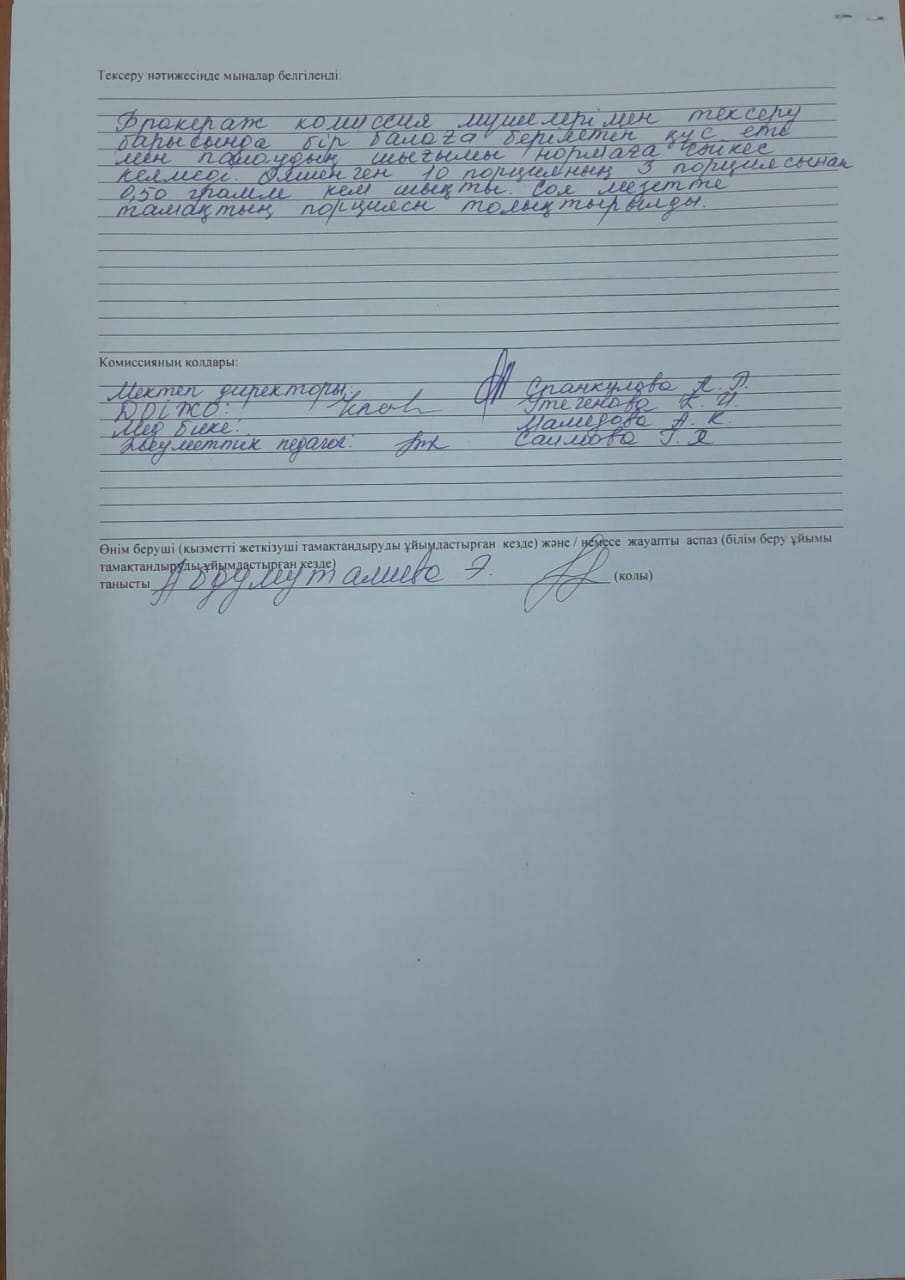 Тексеру нәтижесінде мыналар белгіленді:
Бракераж комиссия мүшелерімен тексеру
барысында бір балаға берілетін құс еті
мен палаудың шығымы нормаға сәйкес
келмеді. Өлшенген 10 порцияның 3 порциясынан
0,50 грамм кем шықты. Сол мезетте
тамақтың порциясы толықтырылды.
Комиссияның қолдары:
Мектеп директоры: Спанкулова А.
ДОІЖО: Утегенова
Мед бике: Мамедова А. К.
Әлеуметтік педагог: Саилова Г.
Өнім беруші (қызметті жеткізуші тамақтандыруды ұйымдастырған кезде) және / немесе жауапты аспаз (білім беру ұйымы
тамақтандыруды ұйымдастырған кезде)
танысты Абдумуталиева Э. (қолы)